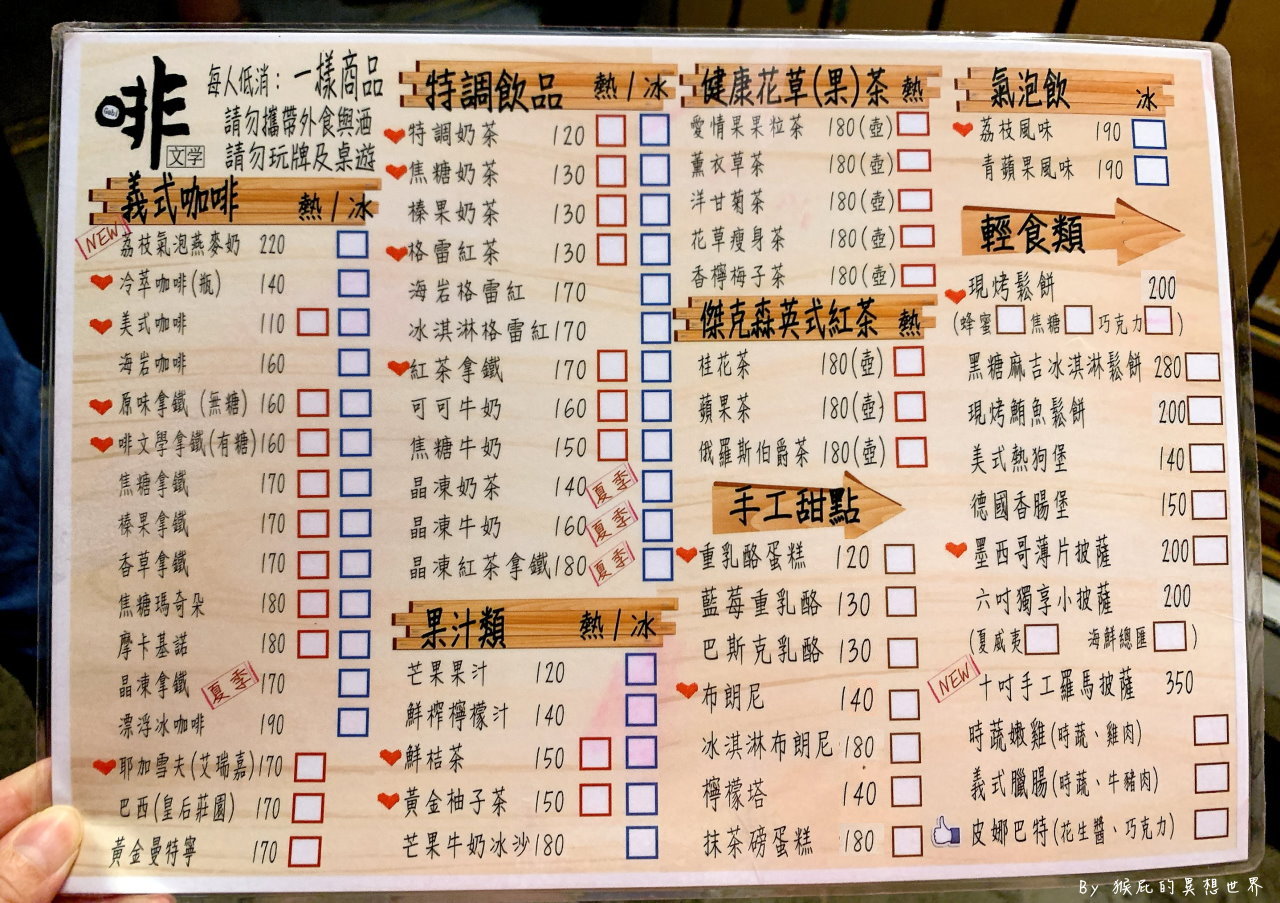 啡
文学
每人低消：一樣商品
請勿攜帶外食與酒
請勿玩牌及桌遊
義式咖啡 熱/冰
NEW
荔枝氣泡燕麥奶 220
冷萃咖啡(瓶) 140
美式咖啡 110
海岩咖啡 160
原味拿鐵(無糖) 160
啡文學拿鐵(有糖) 160
焦糖拿鐵 170
榛果拿鐵 170
香草拿鐵 170
焦糖瑪奇朵 180
摩卡基諾 180
晶凍拿鐵 夏季 170
漂浮冰咖啡 190
耶加雪夫(艾瑞嘉) 170
巴西(皇后莊園) 170
黃金曼特寧 170
特調飲品 熱/冰
特調奶茶 120
焦糖奶茶 130
榛果奶茶 130
格雷紅茶 130
海岩格雷紅 170
冰淇淋格雷紅 170
紅茶拿鐵 170
可可牛奶 160
焦糖牛奶 150
晶凍奶茶 140 夏季
晶凍牛奶 160 夏季
晶凍紅茶拿鐵 180 夏季
果汁類 熱/冰
芒果果汁 120
鮮榨檸檬汁 140
鮮桔茶 150
黃金柚子茶 150
芒果牛奶冰沙 180
健康花草(果)茶 熱
愛情果果粒茶 180(壺)
薰衣草茶 180(壺)
洋甘菊茶 180(壺)
花草瘦身茶 180(壺)
香檸梅子茶 180(壺)
傑克森英式紅茶 熱
桂花茶 180(壺)
蘋果茶 180(壺)
俄羅斯伯爵茶 180(壺)
手工甜點
重乳酪蛋糕 120
藍莓重乳酪 130
巴斯克乳酪 130
布朗尼 140
冰淇淋布朗尼 180
檸檬塔 140
抹茶磅蛋糕 180
氣泡飲 冰
荔枝風味 190
青蘋果風味 190
輕食類
現烤鬆餅 200
(蜂蜜 焦糖 巧克力 )
黑糖麻吉冰淇淋鬆餅 280
現烤鮪魚鬆餅 200
美式熱狗堡 140
德國香腸堡 150
墨西哥薄片披薩 200
六吋獨享小披薩 200
(夏威夷 海鮮總匯 )
NEW
十吋手工羅馬披薩 350
時蔬嫩雞(時蔬、雞肉)
義式臘腸(時蔬、牛豬肉)
皮娜巴特(花生醬、巧克力)
By 猴屁的異想世界